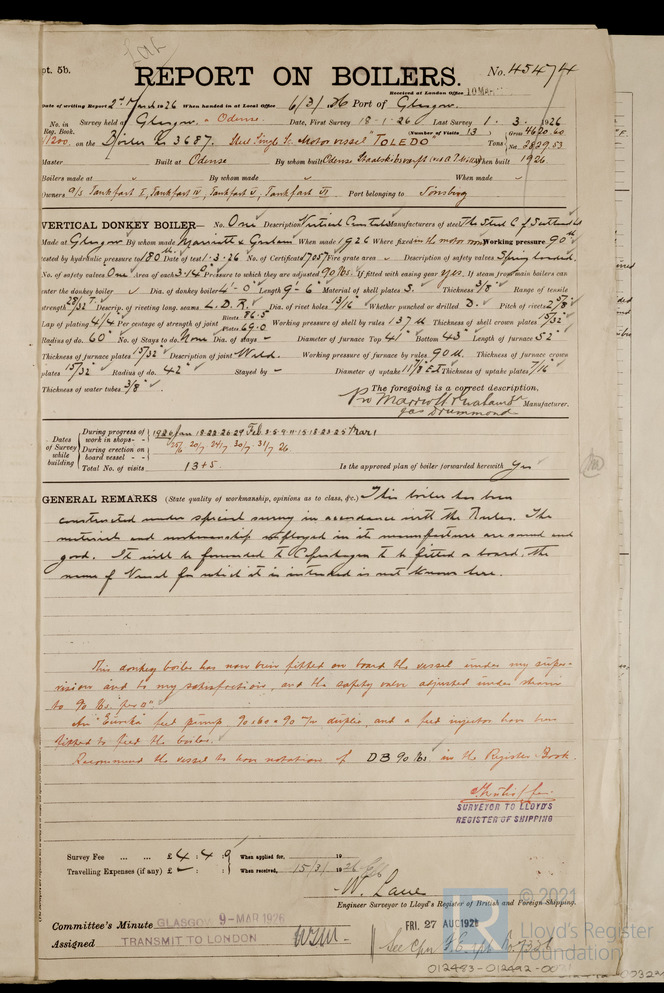 pt. 5b.
REPORT ON BOILERS.
No. 45474
Received at London Office
Date of writing Report 2nd March 1926 When handed in at Local Office 6/3/26 Port of Glasgow.
No. in Reg. Book. Survey held at Glasgow & Odense. Date, First Survey 18-1-26 Last Survey 1.3.1926
on the Boiler No 3687. Steel Single Sc Motor vessel "TOLEDO" (Number of Visits 13) Tons Gross 4620.60 Net 2829.53
Master Built at Odense By whom built Odense When built 1926.
Boilers made at By whom made When made
Owners A/S Tankfart I, Tankfart IV, Tankfart V, Tankfart VI. Port belonging to Tonsberg
VERTICAL DONKEY BOILER— No. One Description Vertical Manufacturers of steel The Steel Co of Scotland Ld
Made at Glasgow By whom made Marriott & Graham When made 1926 Where fixed in the motor room Working pressure 90
tested by hydraulic pressure to 180 Date of test 1.3.26 No. of Certificate Fire grate area Description of safety valves Spring loaded.
No. of safety valves One Area of each 3.14 Pressure to which they are adjusted 90 lbs. If fitted with easing gear yes. If steam from main boilers can
enter the donkey boiler Dia. of donkey boiler 4'-0" Length 9'-6" Material of shell plates S. Thickness 3/8" Range of tensile
strength 28/32 T. Descrip. of riveting long. seams L.D.R. Dia. of rivet holes 13/16" Whether punched or drilled D. Pitch of rivets 2 5/8"
Lap of plating 4 1/4 Per centage of strength of joint Rivets 86.5 Plates 69.0 Working pressure of shell by rules 137 lbs Thickness of shell crown plates 15/32"
Radius of do. 60" No. of Stays to do. None Dia. of stays - Diameter of furnace Top 41" Bottom 43" Length of furnace 52"
Thickness of furnace plates 15/32" Description of joint Weld. Working pressure of furnace by rules 90 lbs. Thickness of furnace crown
plates 15/32" Radius of do. 42" Stayed by - Diameter of uptake 11 7/8" Ext Thickness of uptake plates 7/16"
Thickness of water tubes 3/8"
The foregoing is a correct description,
Pro Marriott & Graham
Jas Drummond Manufacturer.
Dates of Survey while building
During progress of work in shops - - 1926 Jan 18 22 26 29 Feb 2 5 9 11 15 18 23 25 Mar 1
During erection on board vessel - - 20/7 24/7 30/7 31/7 26
Total No. of visits 13+5.
Is the approved plan of boiler forwarded herewith Yes
GENERAL REMARKS (State quality of workmanship, opinions as to class, &c.) This boiler has been
constructed under special survey in accordance with the Rules. The
material and workmanship employed in its manufacture are sound and
good. It will be forwarded to Copenhagen to be fitted on board, the
name of Vessel for which it is intended is not known here.
This donkey boiler has now been fitted on board the vessel under my super-
vision and to my satisfaction, and the safety valve adjusted under steam
to 90 lbs. per □".
An "Eureka" feed pump 90x60x90 m/m duplex, and a feed injector have been
fitted to feed the boiler.
Recommend the vessel to have notation of DB 90 lbs. in the Register Book.
SURVEYOR TO LLOYD'S
REGISTER OF SHIPPING
Survey Fee ... ... £ 4 : 4 : When applied for, 19
Travelling Expenses (if any) £ - : : When received, 15/3/1926
W. Lane
Engineer Surveyor to Lloyd's Register of British and Foreign Shipping.
Committee's Minute GLASGOW 9-MAR 1926 FRI. 27 AUG 1926
Assigned TRANSMIT TO LONDON
© 2021
Lloyd's Register
Foundation
012483-012492-00